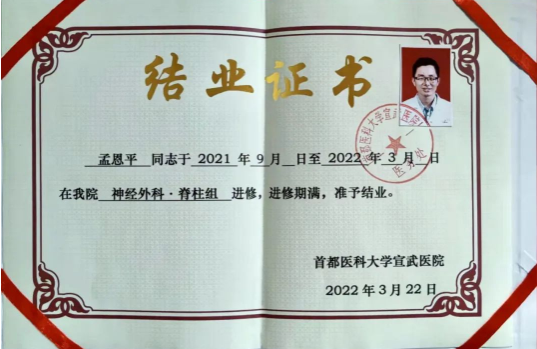 结业证书
孟恩平 同志于 2021 年 9 月 日至 2022 年 3 月 日
在我院 神经外科·脊柱组 进修，进修期满，准予结业。
首都医科大学宣武医院
2022 年 3 月 22 日
首都医科大学宣武医院